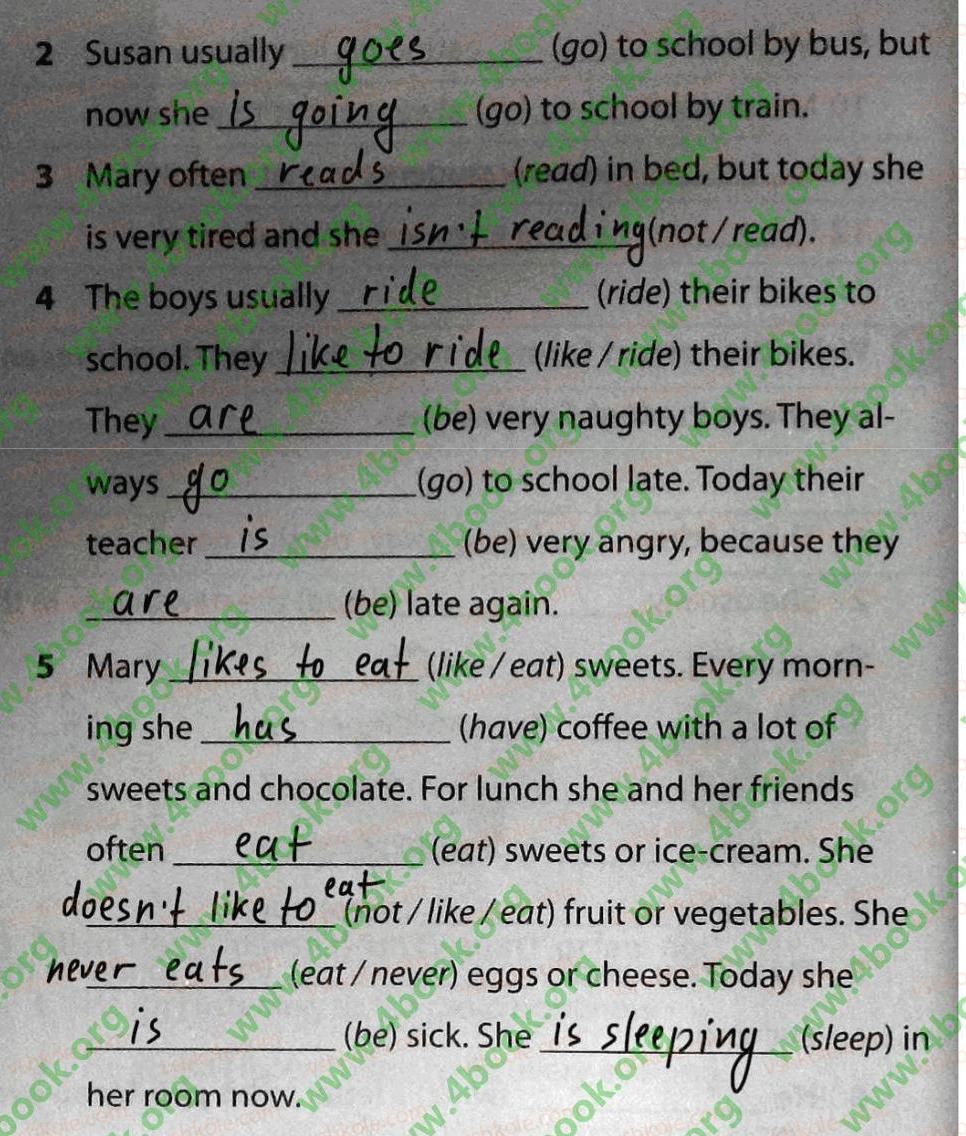 2 Susan usually goes (go) to school by bus, but
now she is going (go) to school by train.
3 Mary often reads (read) in bed, but today she
is very tired and she isn't reading (not / read).
4 The boys usually ride (ride) their bikes to
school. They like to ride (like / ride) their bikes.
They are (be) very naughty boys. They al-
ways go (go) to school late. Today their
teacher is (be) very angry, because they
are (be) late again.
5 Mary likes to eat (like / eat) sweets. Every morn-
ing she has (have) coffee with a lot of
sweets and chocolate. For lunch she and her friends
often eat (eat) sweets or ice-cream. She
doesn't like to eat (not / like / eat) fruit or vegetables. She
never eats (eat / never) eggs or cheese. Today she
is (be) sick. She is sleeping (sleep) in
her room now.
www.4book.org